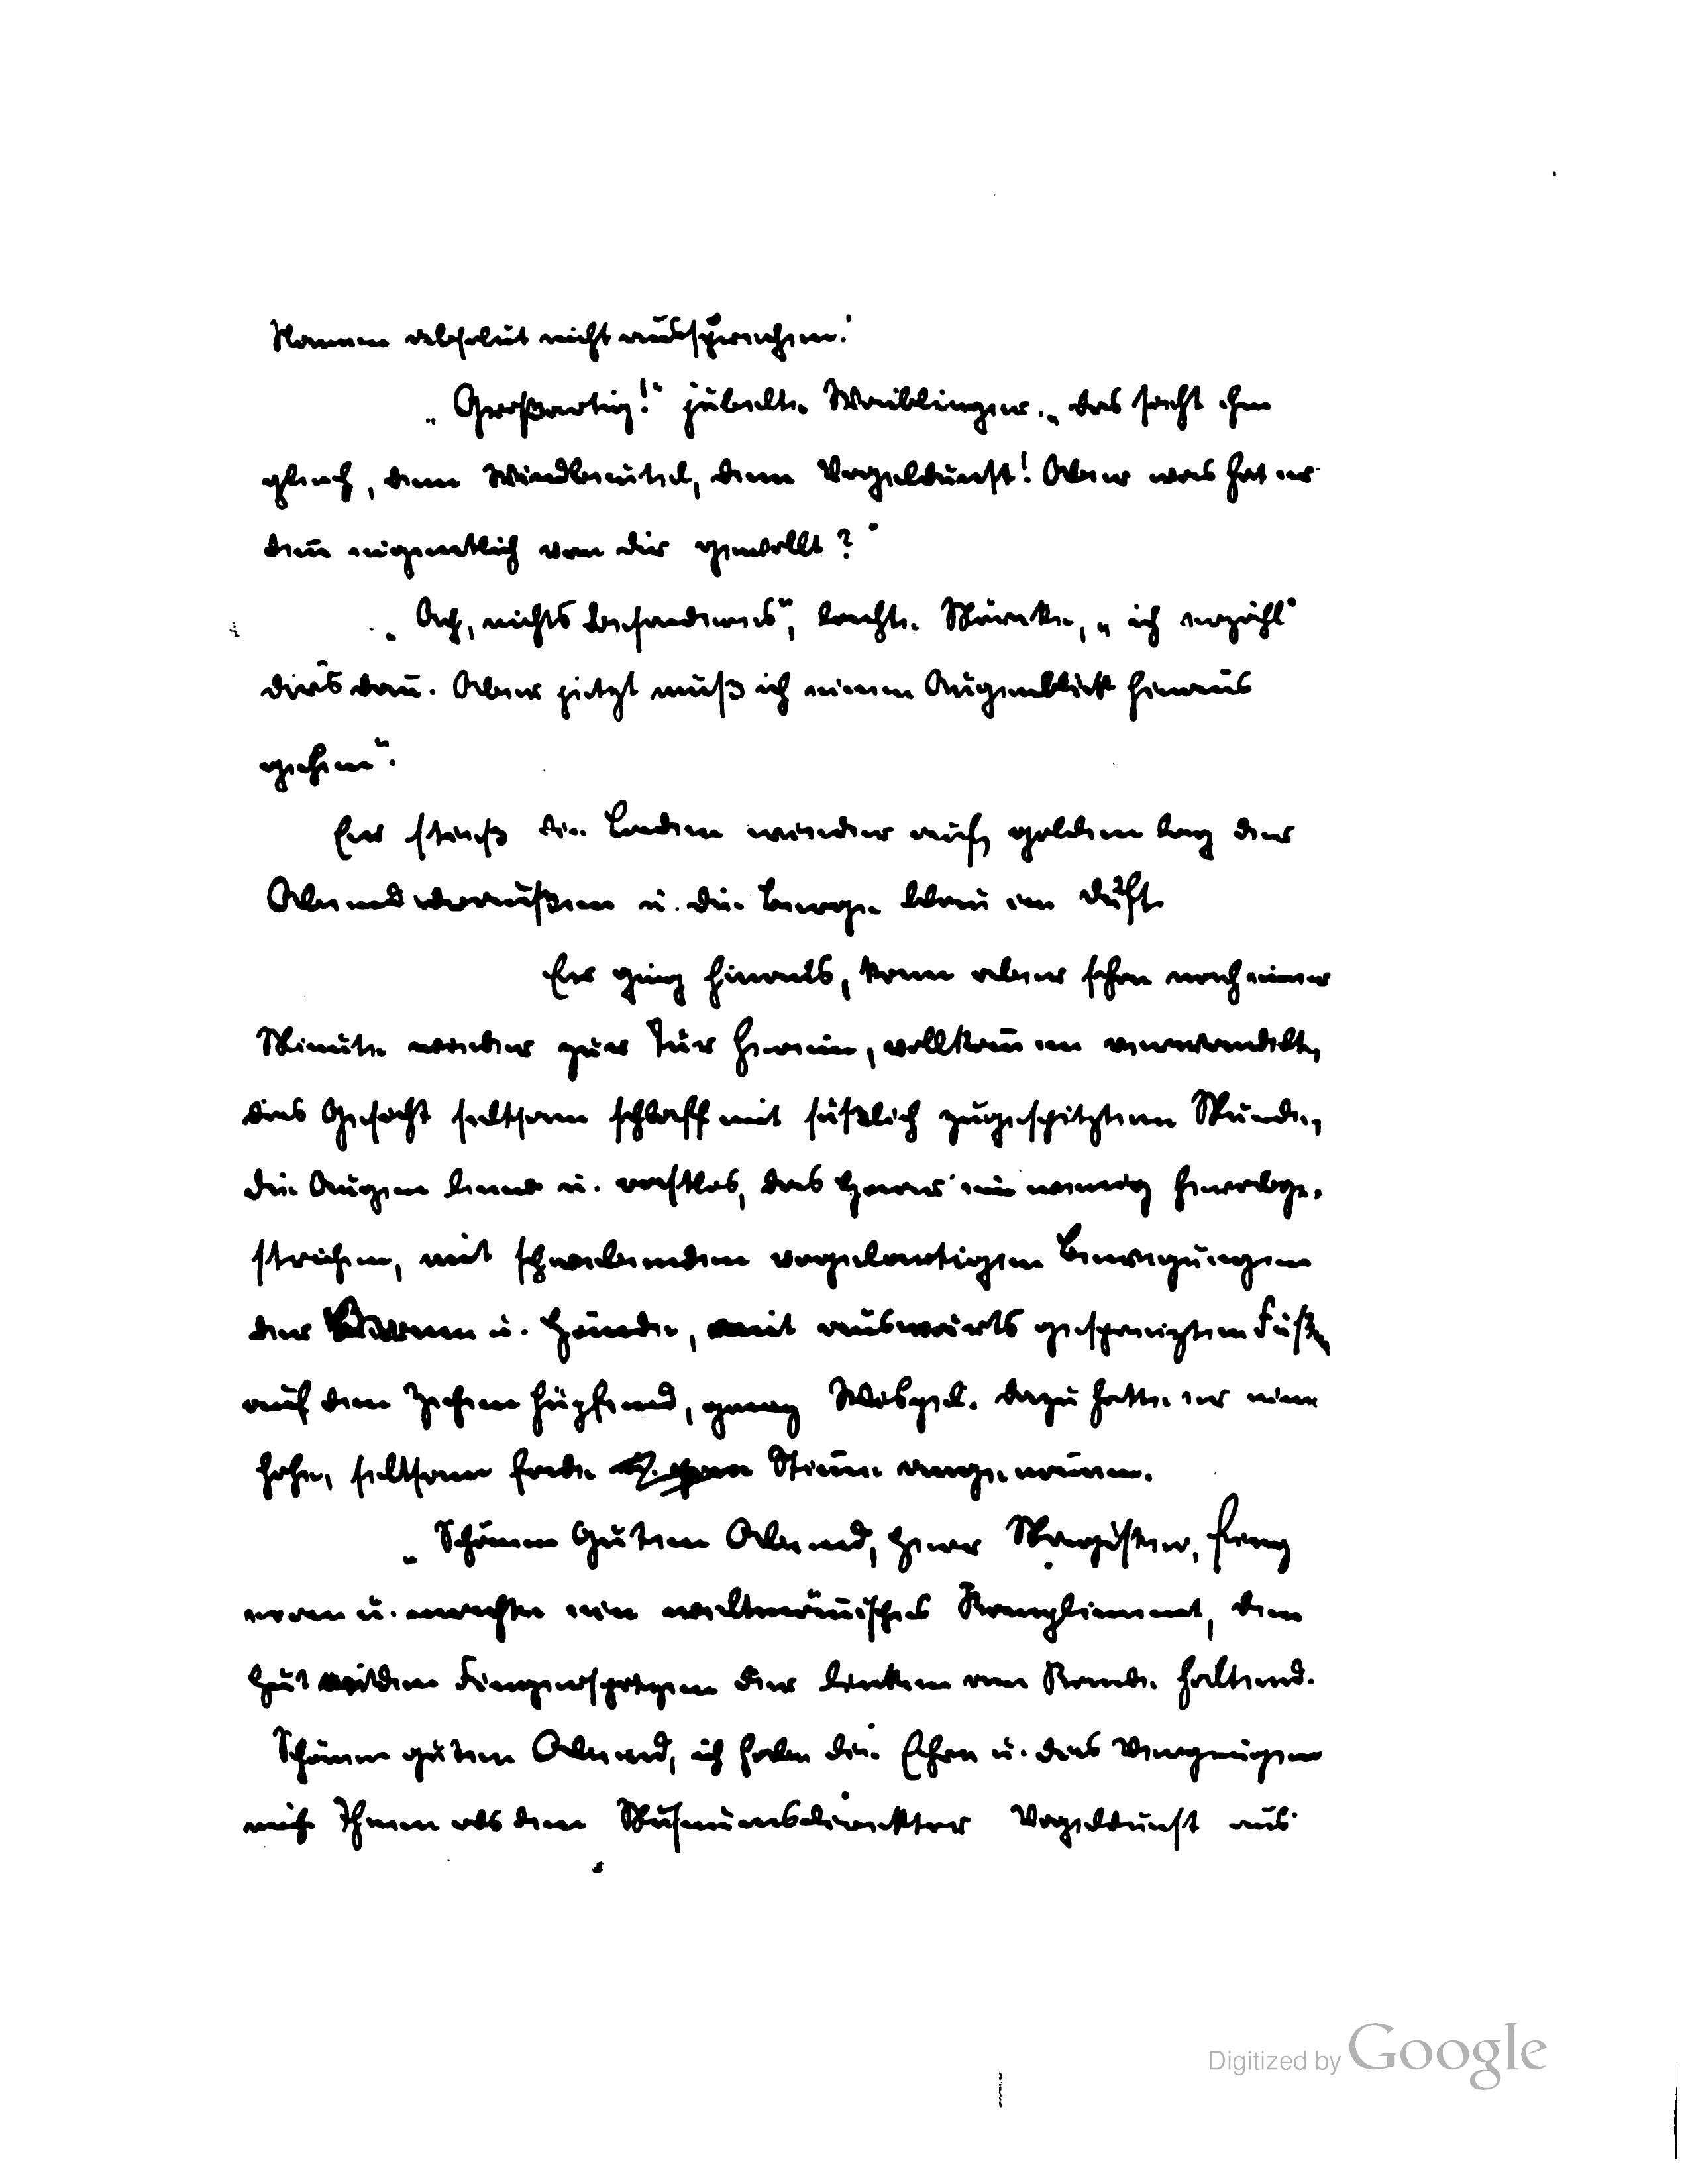 Namen absolut nicht aussprechen."
„Großartig!" jubelte Waiblinger. „das sieht ihm
gleich, dem Windbeutel, dem Vogeldunst! Aber was hat er
deñ eigentlich von dir gewollt?"
„Ach, nichts besonderes", lachte Mörike, „ich erzähl'
dir's dañ. Aber jetzt muß ich einen Augenblick hinaus
gehen".
Er stieß die Laden wieder auf, golden lag der
Abend draußen u. die Berge blau im Duft.
Er ging hinaus, kam aber schon nach einer
Minute wieder zur Tür herein, vollkom̄en verwandelt,
das Gesicht seltsam schlaff mit süßlich zugespitztem Munde,
die Augen leer u. rastlos, das Haar ein wenig herabge-
strichen, mit schwebenden vogelartigen Bewegungen
der Arme u. Hände, mit auswärts gespreizten Füßen
auf den Zehen hüpfend, ganz Wispel. Dazu hatte er eine
hohe, seltsam fade Stim̄e angenom̄en.
„Schönen Guten Abend, Herr Magister, fing
er an u. machte ein weltmäñisches Kompliment, den
Hut mit den Fingerspitzen der Linken am Rande haltend.
Schönen guten Abend, ich habe die Ehre u. das Vergnügen
mich Ihnen als den Museumsdirektor Vogeldunst aus
Digitized by Google